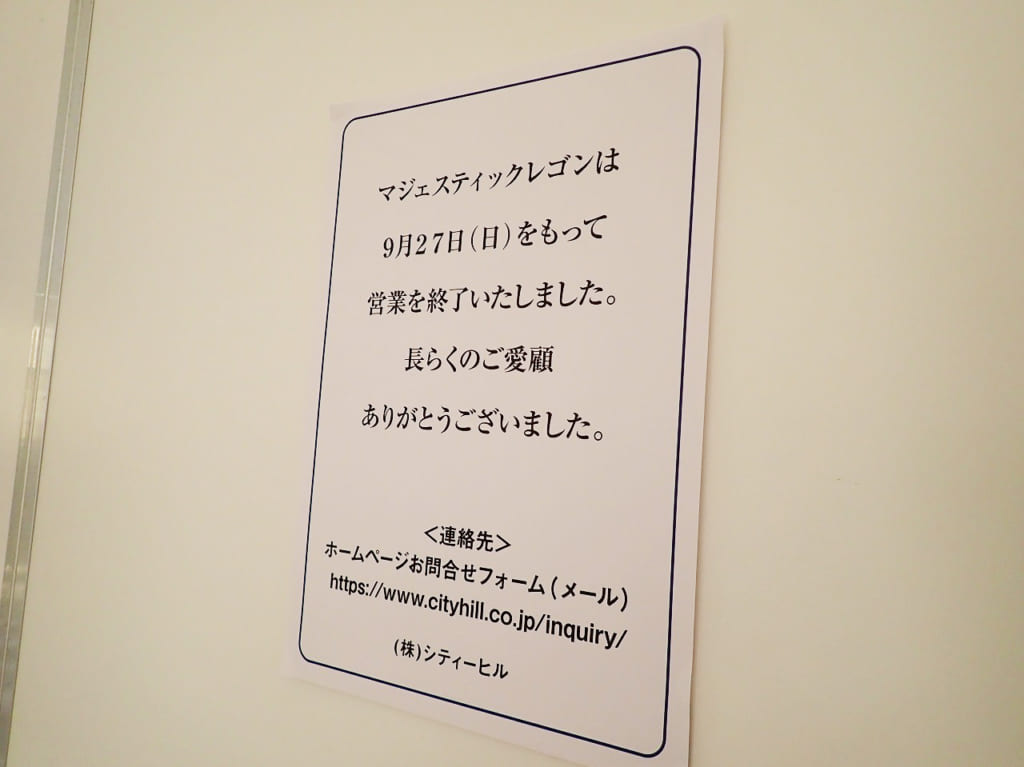 マジェスティックレゴンは
9月27日(日)をもって
営業を終了いたしました。
長らくのご愛顧
ありがとうございました。
＜連絡先＞
ホームページお問合せフォーム(メール)
https://www.cityhill.co.jp/inquiry/
(株)シティーヒル